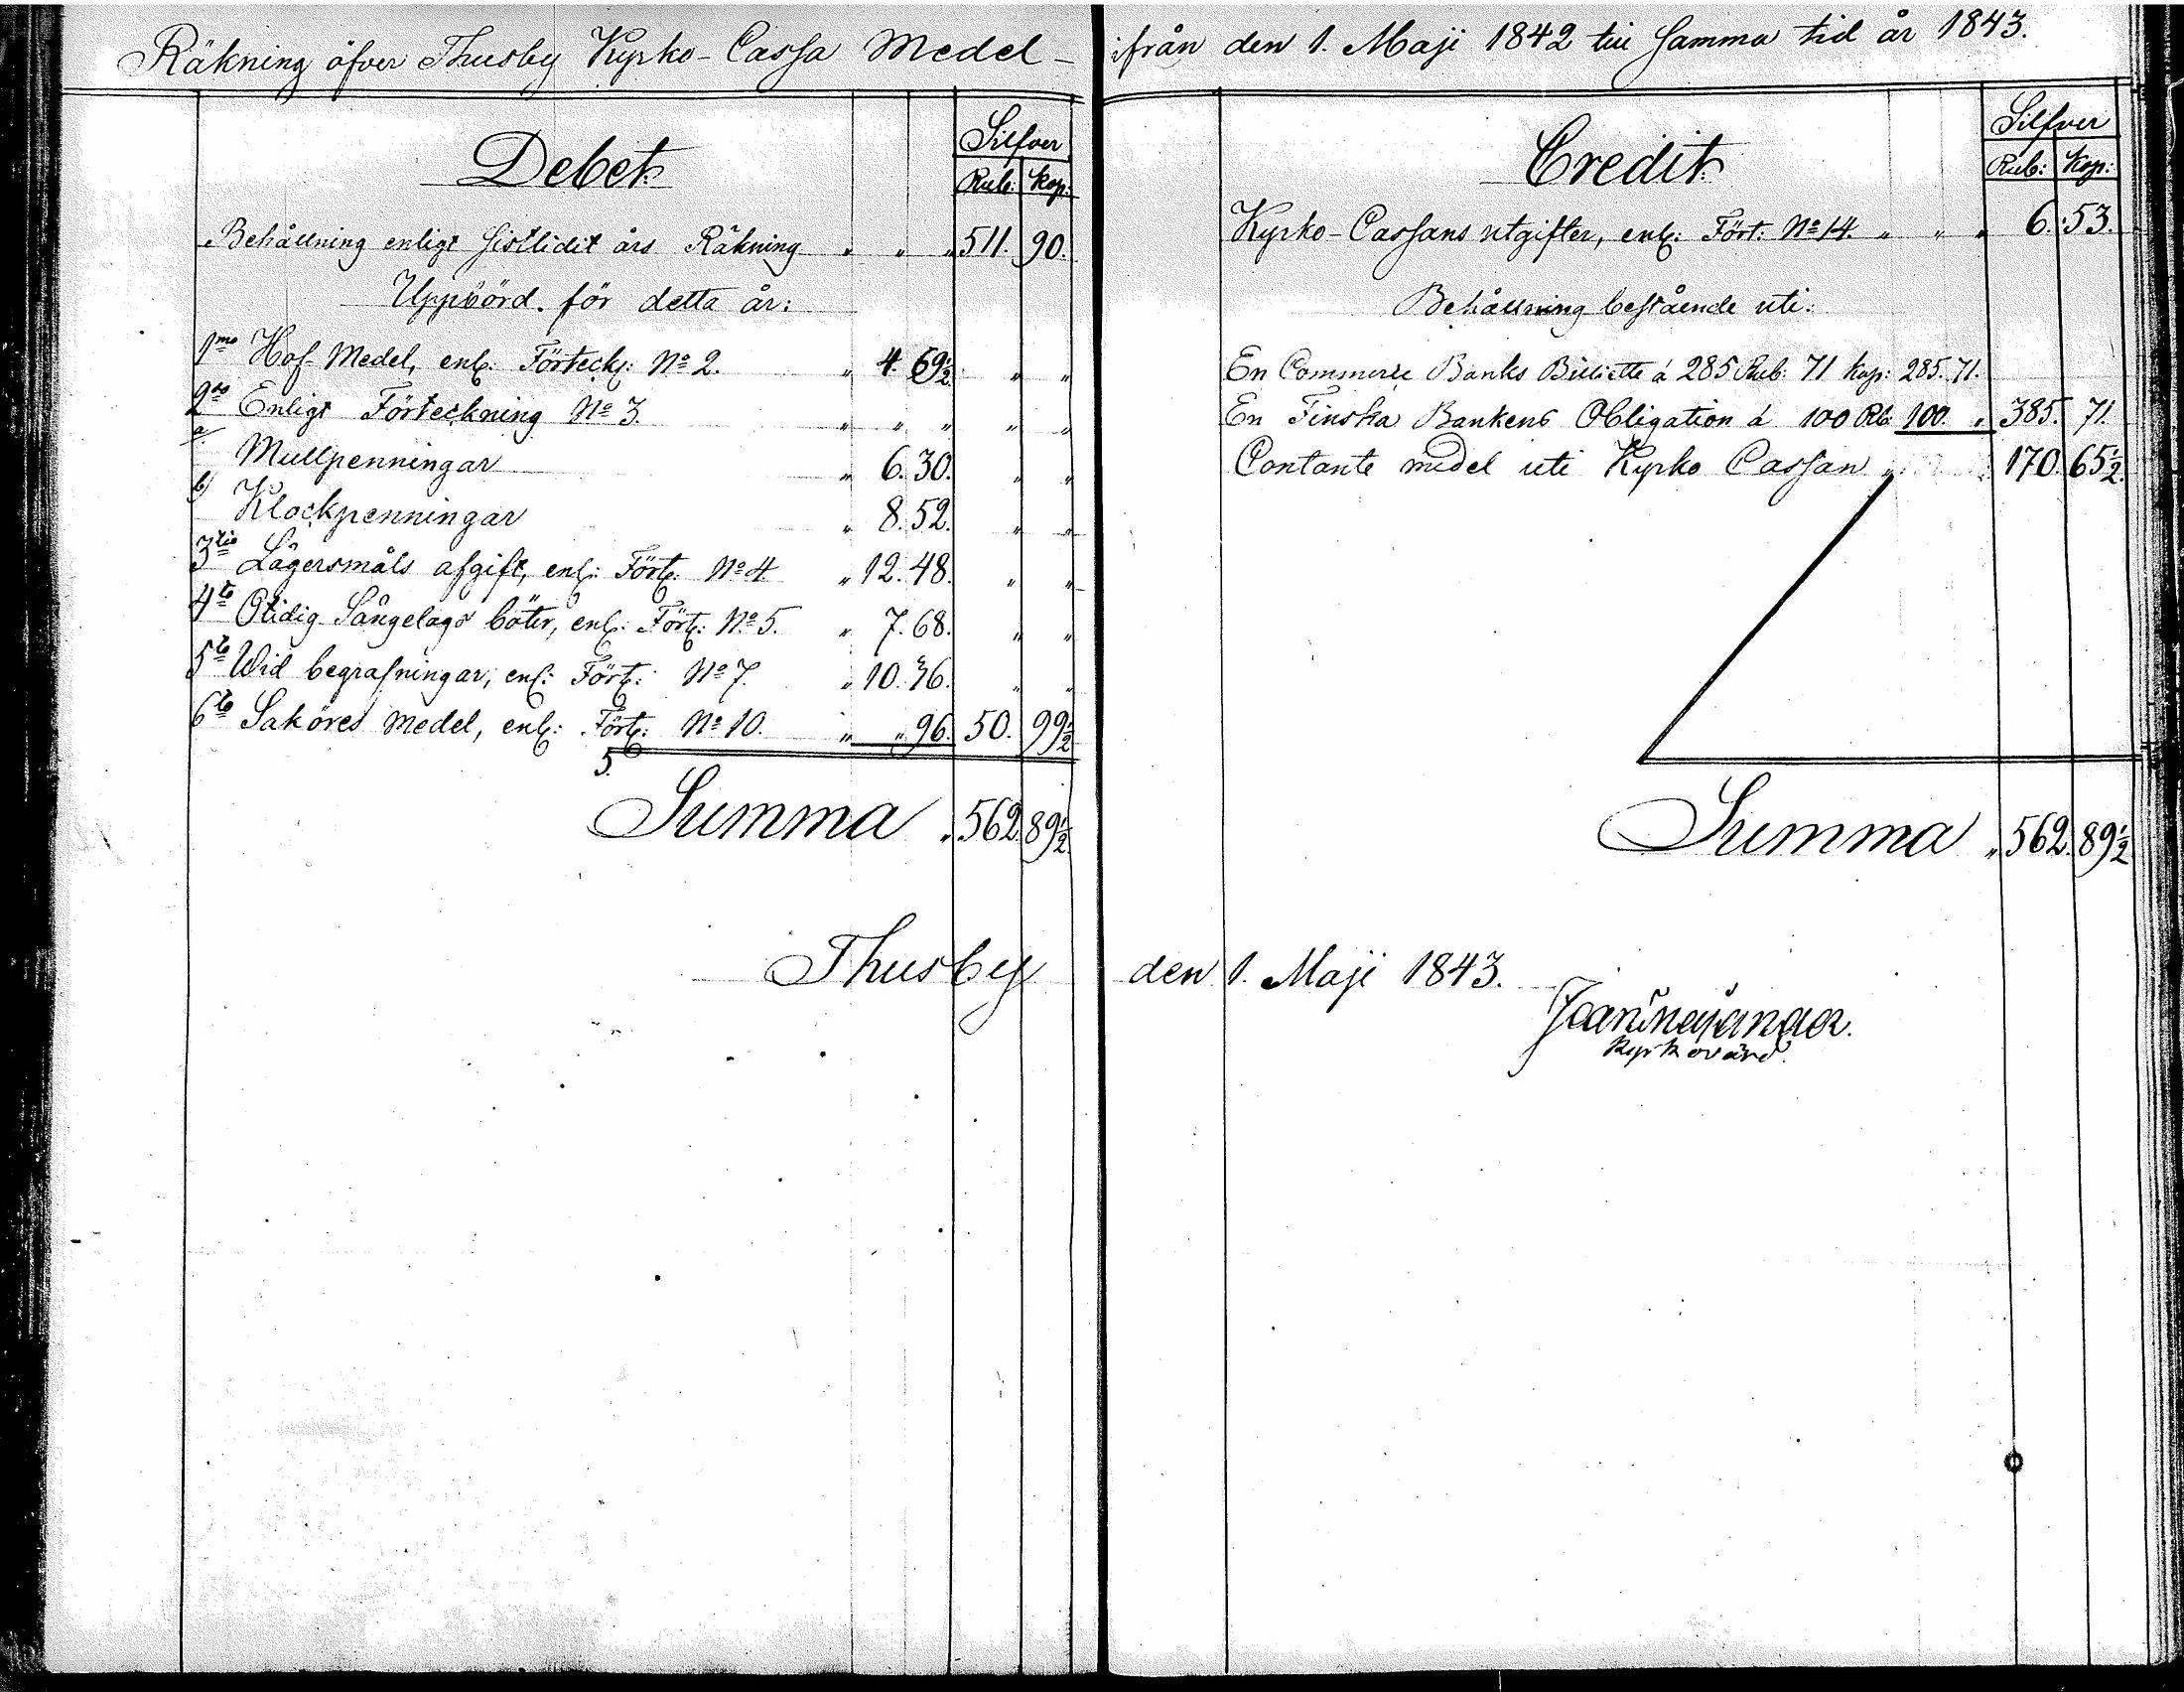 Räkning öfver Thusby Kyrko-Cassa Medel - ifrån den 1. Maji 1842 till samma tid år 1843.
Debet.
Silfver
Rub: Kop:
Behållning enligt sistlidit års Räkning " " " 511. 90.
Uppbörd för detta år:
1mo Hof Medel, enl: Förteckn: No 2. " 4. 69½ " "
2do Enligt Förteckning No 3. " " " " "
a/ Mullpenningar " 6. 30. " "
b/ Klockpenningar " 8. 52. " "
3tio Lägersmåls afgift, enl: Fört: No 4 " 12. 48. " "
4to Otidig Sängelags böter, enl: Fört: No 5. " 7. 68. " "
5to Wid begrafningar, enl: Fört: No 7. " 10. 36. " "
6to Saköres medel, enl: Fört: No 10. " " 96. 50. 99½
S.
Summa " 562. 89½.
Thusby den 1. Maji 1843.
Credit.
Silfver
Rub: Kop:
Kyrko-Cassans utgifter, enl: Fört: No 14. " " " 6. 53.
Behållning bestående uti:
En Commerce Banks Billiette á 285 Rub: 71 Kop: 285. 71.
En Finska Bankens Obligation á 100 Rb. 100. " 385. 71.
Contante medel uti Kyrko Cassan " 170. 65½.
Summa " 562. 89½
Kyrkovärd.